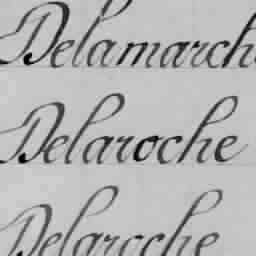 Delamarche
Delaroche
Delaroche